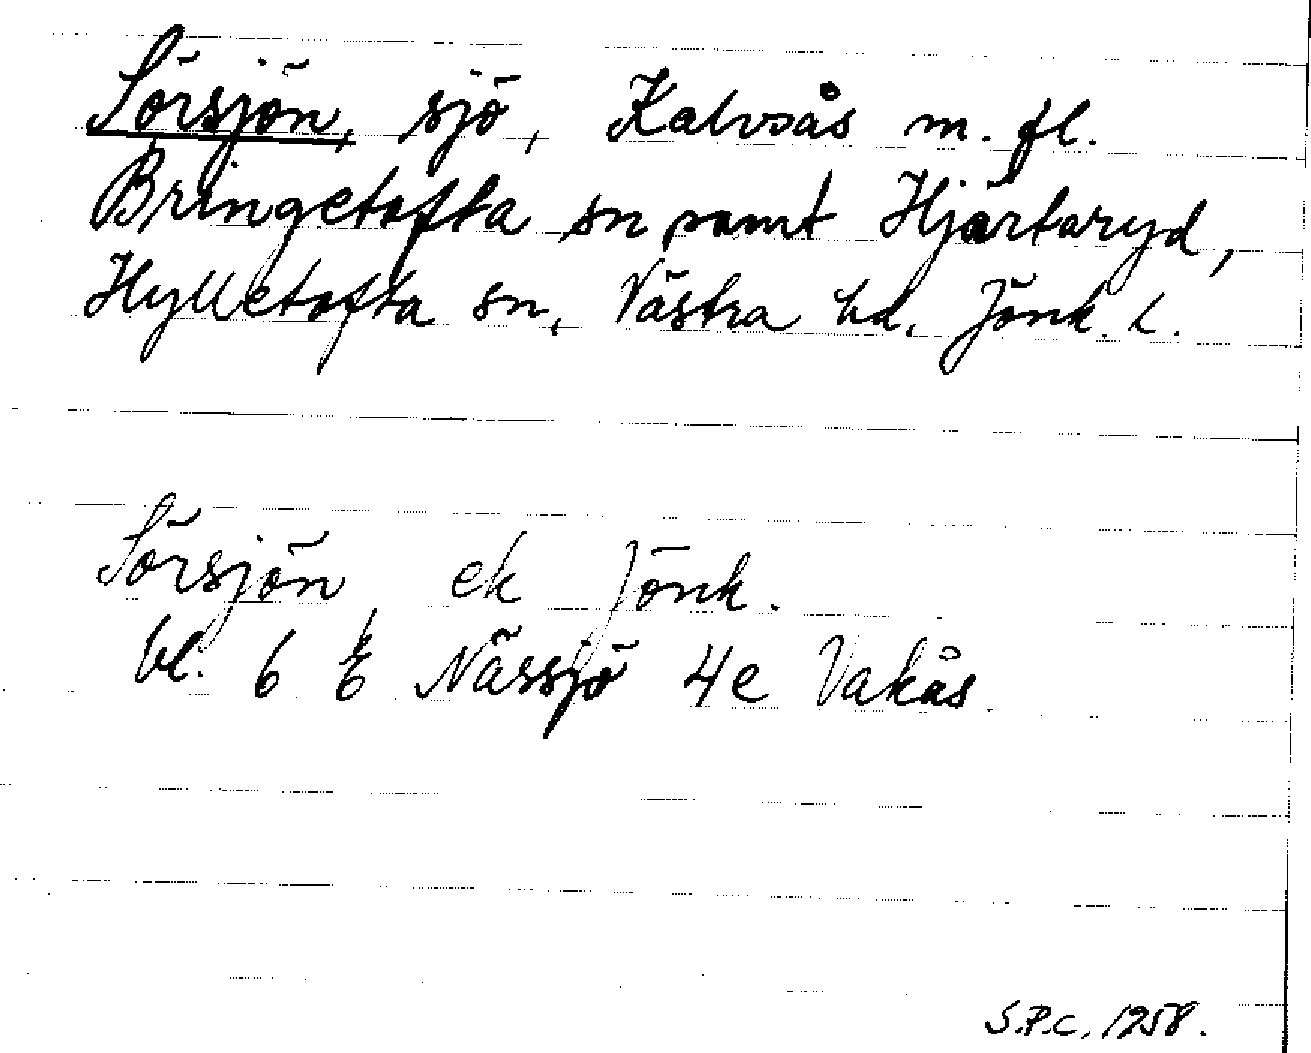 Sörsjön, sjö, Kalvsås m. fl.
Bringetofta sn samt Hjärtaryd,
Hylletofta sn, Västra hd. Jönk. l.
Sörsjön ek Jönk.
bl. 6 Nässjö 4e Vakås
S.P.C, 1958.